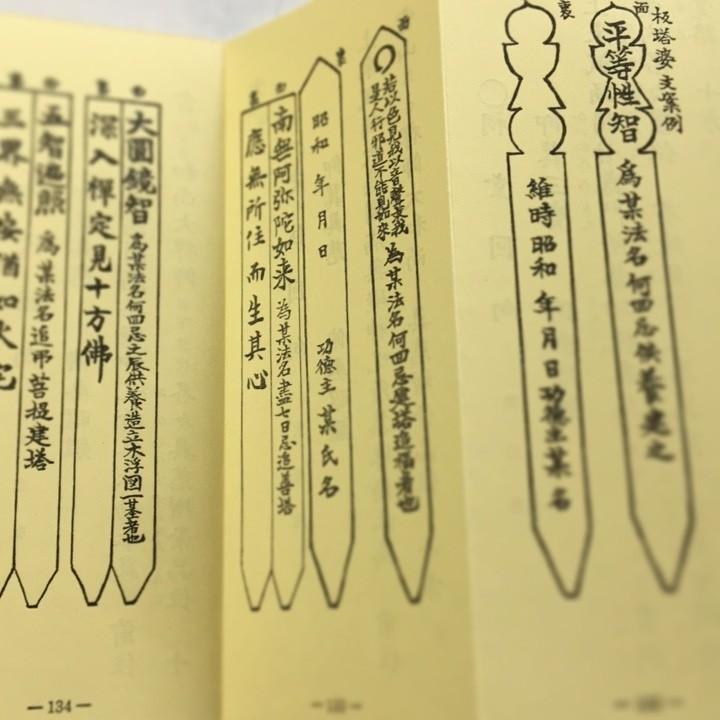 板塔婆文案例
面
平等性智 為某法名何回忌供養建之
裏
維時昭和 年月日功德主某名
面
若以色見我以音聲求我
是人行邪道不能見如来
為某法名何回忌建塔追福者也
昭和 年月日 功德主某氏名
南無阿弥陀如来 為某法名盡七日忌追善塔
應無所住而生其心
大圓鏡智 為某法名何回忌之辰供養造立木浮図一基者也
深入禅定見十方佛
五智遍照 為某法名追吊菩提建塔
三界無安猶如火宅
— 134 —